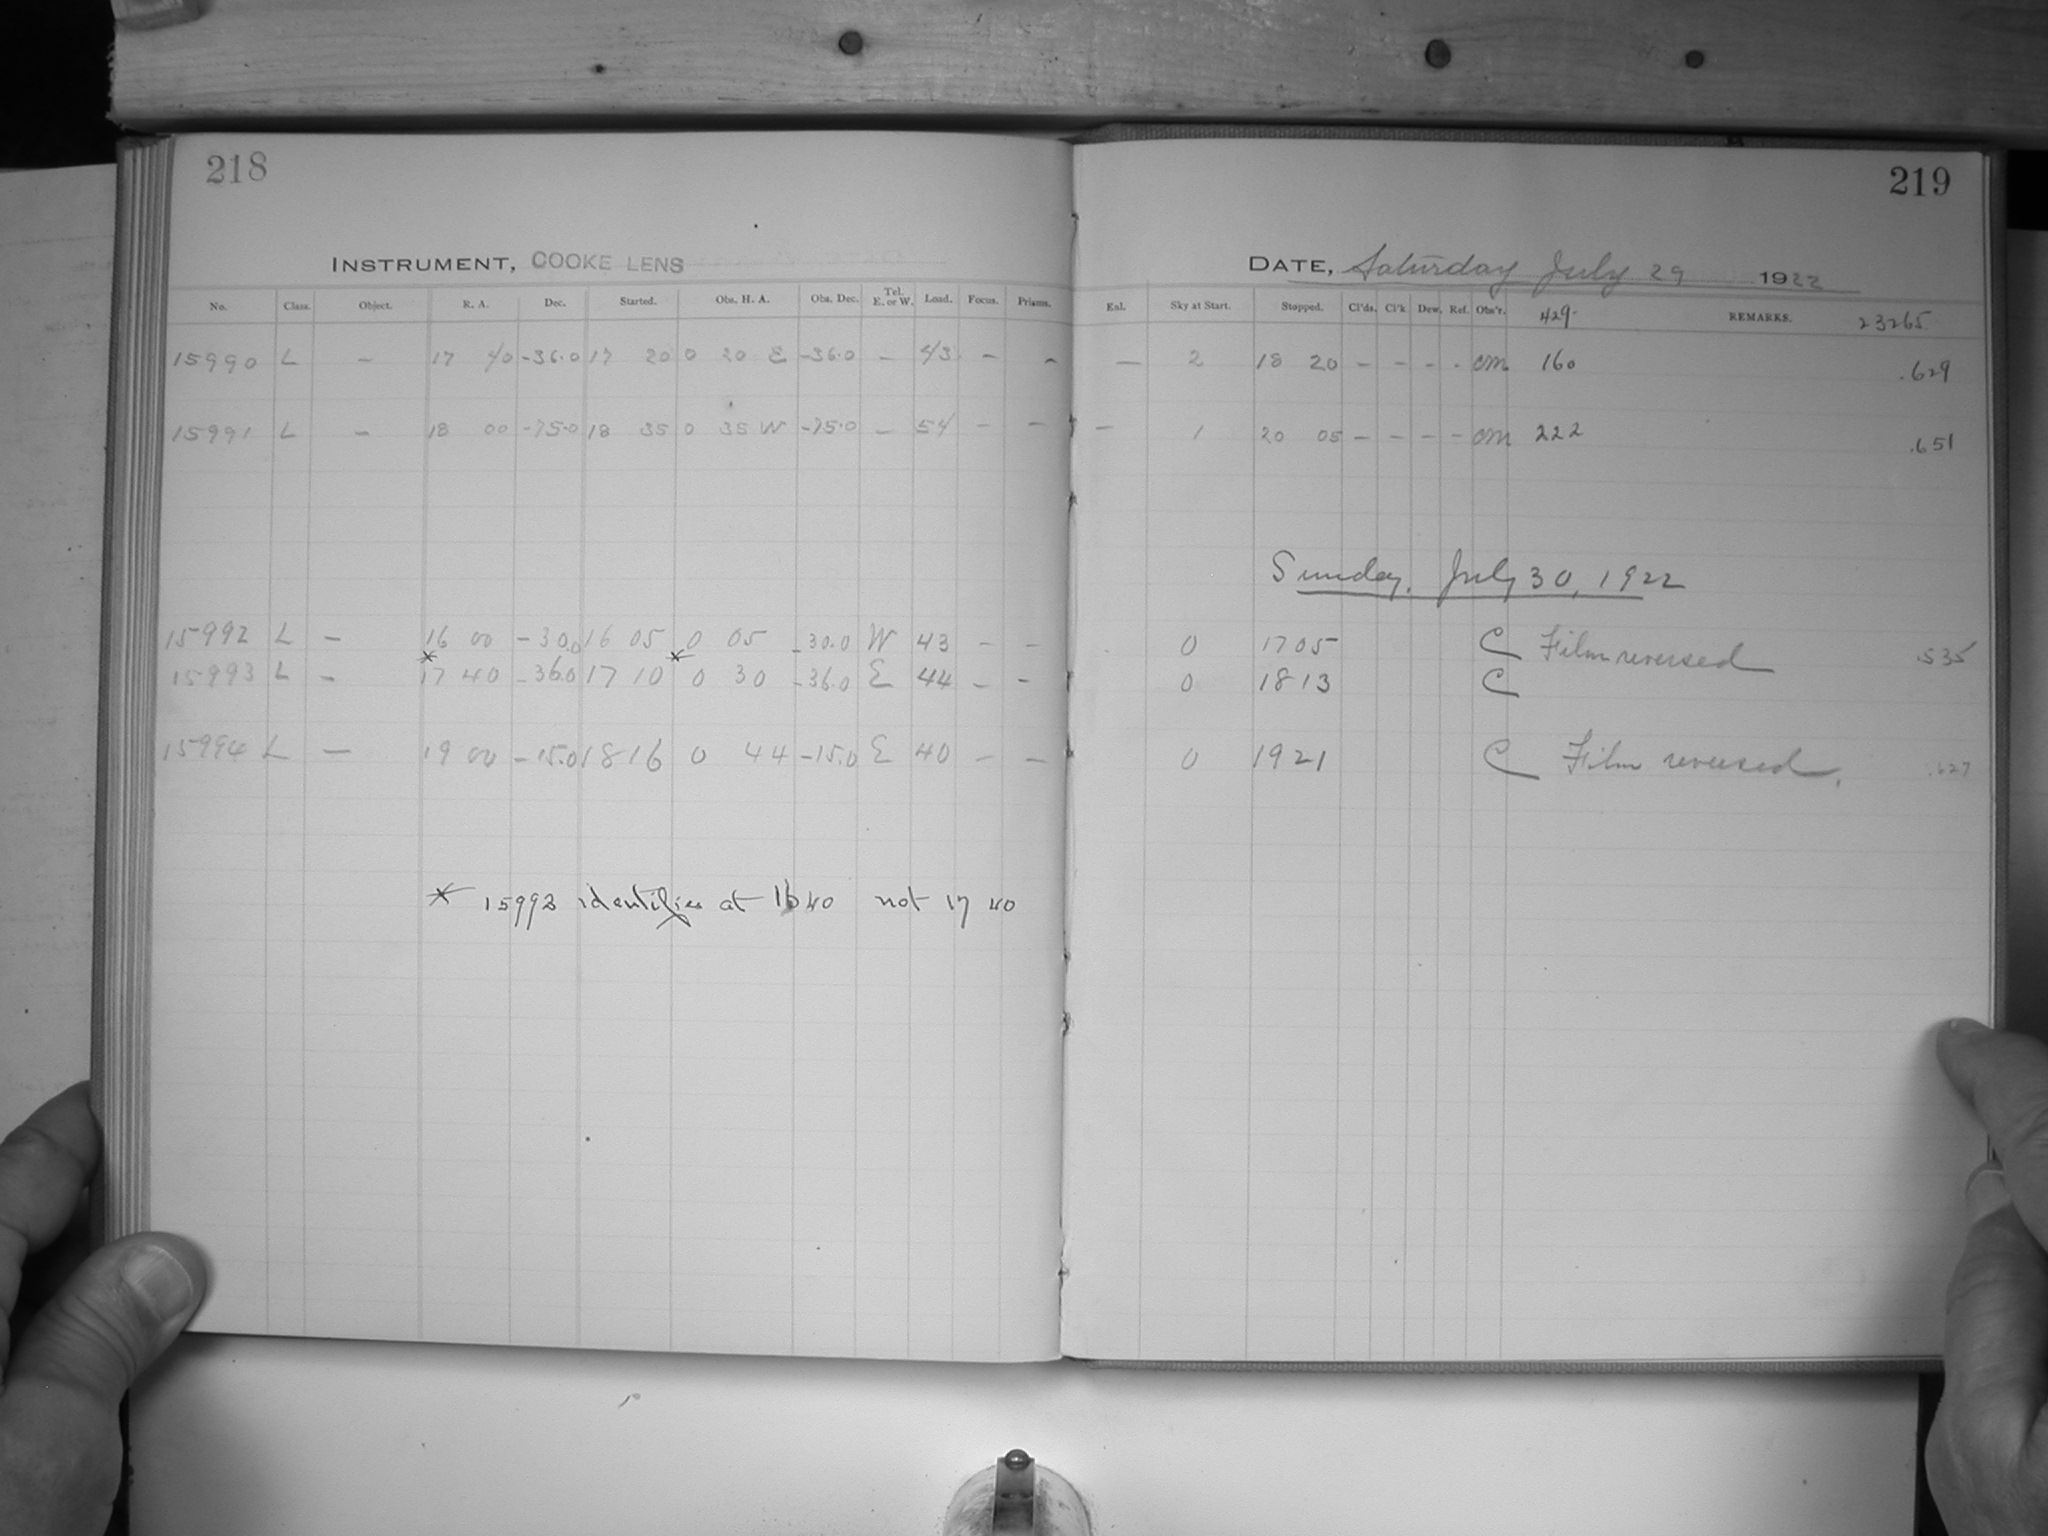 218
INSTRUMENT, COOKE LENS
No. Class. Object. R. A. Dec. Started. Obs. H. A. Obs. Dec. Tel. E. or W. Load. Focus. Prisms.
15990 L – 17 40 -36.0 17 20 0 20 E -36.0 – 43 – –
15991 L – 18 00 -75.0 18 35 0 35 W -75.0 – 54 – –
15992 L – 16 00 -30.0 16 05 0 05 -30.0 W 43 – –
* *
15993 L – 17 40 -36.0 17 10 0 30 -36.0 E 44 – –
15994 L – 19 00 -15.0 18 16 0 44 -15.0 E 40 – –
* 15993 identifies at 16 40 not 17 40
219
DATE, Saturday July 29 1922
Enl. Sky at Start. Stopped. Cl'ds. Cl'k Dew. Ref. Obs'r. 429. REMARKS. 23265
– 2 18 20 – – – - OM 160 .629
– 1 20 05 – – – – OM 222 .651
Sunday, July 30, 1922
0 17 05 C Film reversed .535
0 18 13 C
0 19 21 C Film reversed. .627